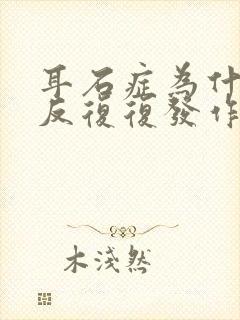 耳石症為什
反復復發作
木淺然